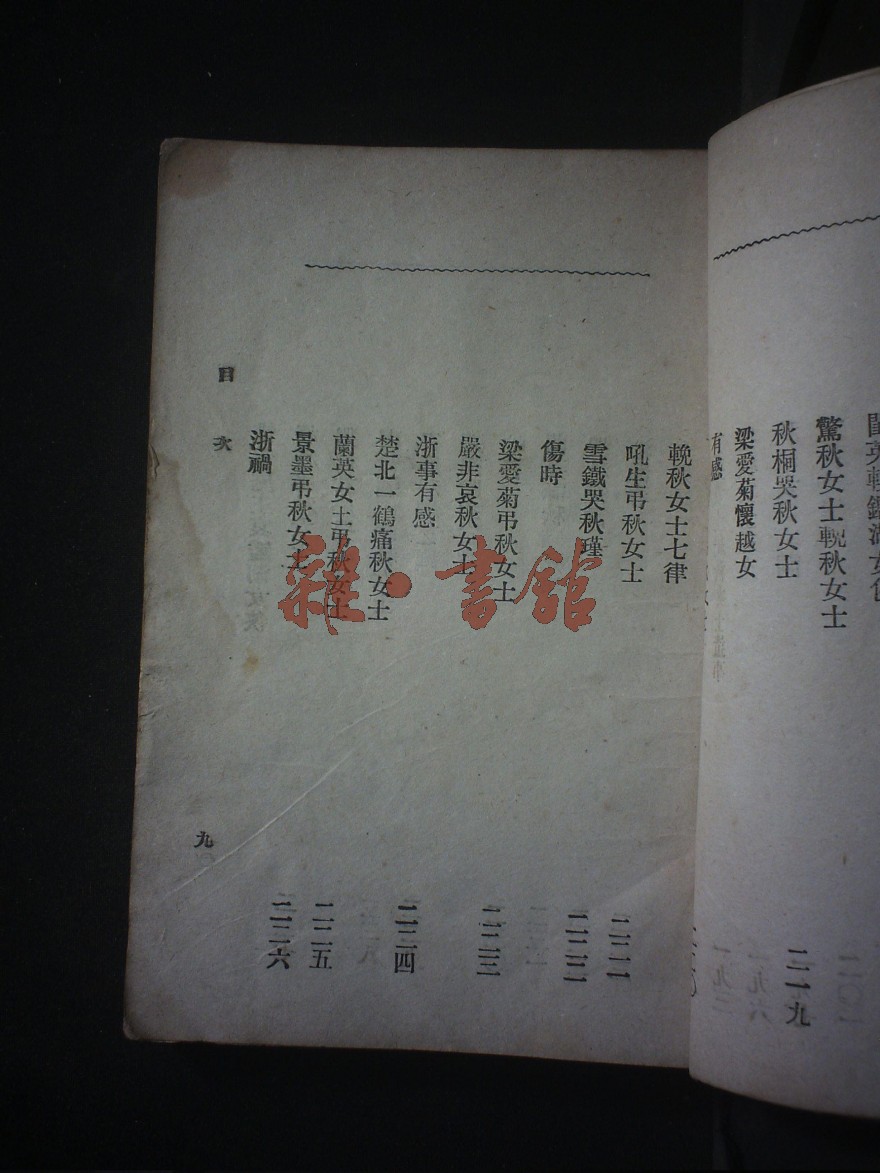 驚秋女士輓秋女士
秋桐哭秋女士 二一九
梁愛菊懷越女
有感
輓秋女士七律
吼生弔秋女士 二二一
雪鐵哭秋瑾 二二二
傷時
梁愛菊弔秋女士 二二三
嚴非哀秋女士
浙事有感 二二四
楚北一鶴痛秋女士
蘭英女士弔秋女士 二二五
景墨弔秋女士 二二六
浙禍
目次
九
雜·書館